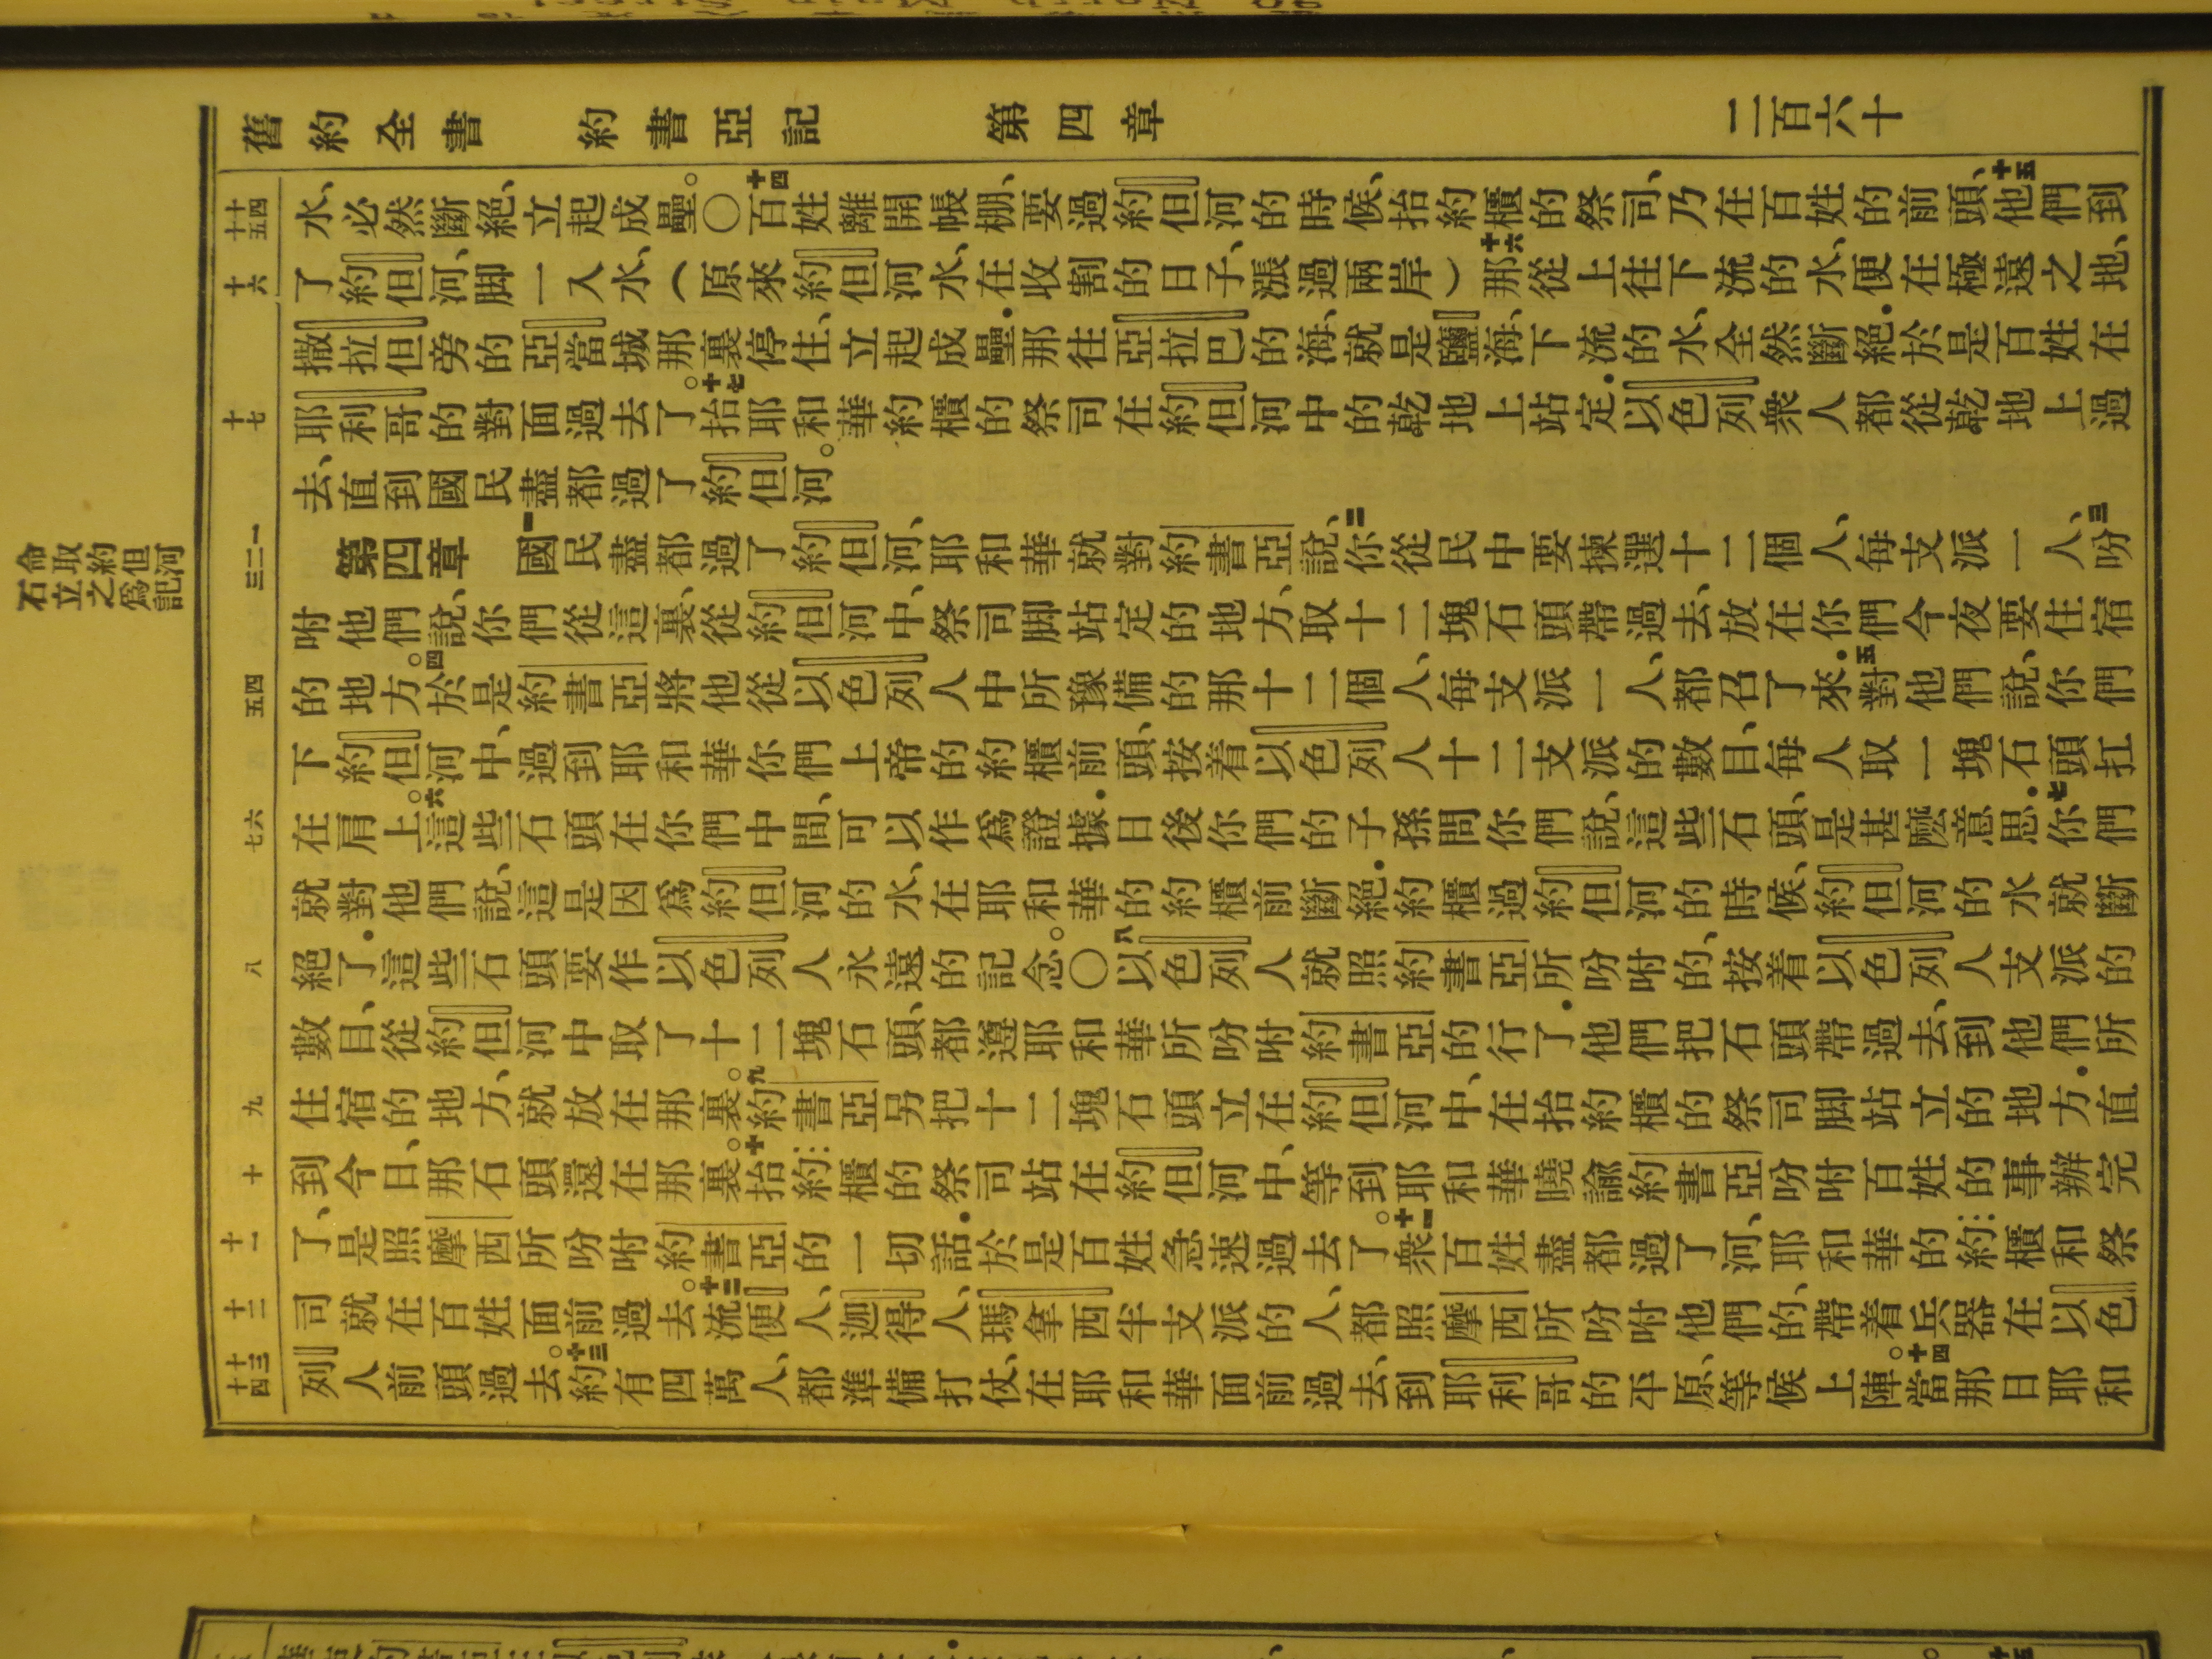 舊約全書 約書亞記 第四章 二百六十
水、必然斷絕、立起成壘。〇十四百姓離開帳棚、要過約但河的時候、抬約櫃的祭司、乃在百姓的前頭、十五他們到
了約但河、脚一入水、（原來約但河水、在收割的日子、漲過兩岸）十六那從上往下流的水、便在極遠之地、
撒拉但旁的亞當城那裏停住、立起成壘．那往亞拉巴的海、就是鹽海、下流的水、全然斷絕．於是百姓在
耶利哥的對面過去了。十七抬耶和華約櫃的祭司在約但河中的乾地上站定．以色列衆人都從乾地上過
去、直到國民盡都過了約但河。
第四章 一國民盡都過了約但河、耶和華就對約書亞說、二你從民中要揀選十二個人、每支派一人、三吩
咐他們說、你們從這裏、從約但河中、祭司脚站定的地方、取十二塊石頭帶過去、放在你們今夜要住宿
的地方。四於是約書亞將他從以色列人中所豫備的那十二個人、每支派一人、都召了來．五對他們說、你們
下約但河中、過到耶和華你們上帝的約櫃前頭、按着以色列人十二支派的數目、每人取一塊石頭扛
在肩上。六這些石頭在你們中間、可以作爲證據．日後你們的子孫問你們說、這些石頭、是甚麼意思．七你們
就對他們說、這是因爲約但河的水、在耶和華的約櫃前斷絕．約櫃過約但河的時候、約但河的水就斷
絕了．這些石頭要作以色列人永遠的記念。〇八以色列人就照約書亞所吩咐的、按着以色列人支派的
數目、從約但河中取了十二塊石頭、都遵耶和華所吩咐約書亞的行了．他們把石頭帶過去、到他們所
住宿的地方、就放在那裏。九約書亞另把十二塊石頭立在約但河中、在抬約櫃的祭司脚站立的地方．直
到今日、那石頭還在那裏。十抬約櫃的祭司站在約但河中、等到耶和華曉諭約書亞吩咐百姓的事辦完
了、是照摩西所吩咐約書亞的一切話．於是百姓急速過去了。十一衆百姓盡都過了河、耶和華的約櫃和祭
司就在百姓面前過去。十二流便人、迦得人、瑪拿西半支派的人、都照摩西所吩咐他們的、帶着兵器在以色
列人前頭過去。十三約有四萬人、都準備打仗、在耶和華面前過去、到耶利哥的平原、等候上陣。十四當那日耶和
十四
十五
十六
十七
一
二
三
四
五
六
七
八
九
十
十一
十二
十三
十四
命取約但河
石立之爲記